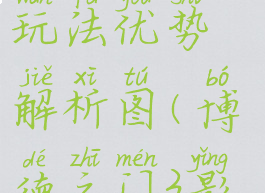 wán fǎ yōu shì
玩法优势
jiě xī tú bó
解析图(博
dé zhī mén yǐng
德之门3影